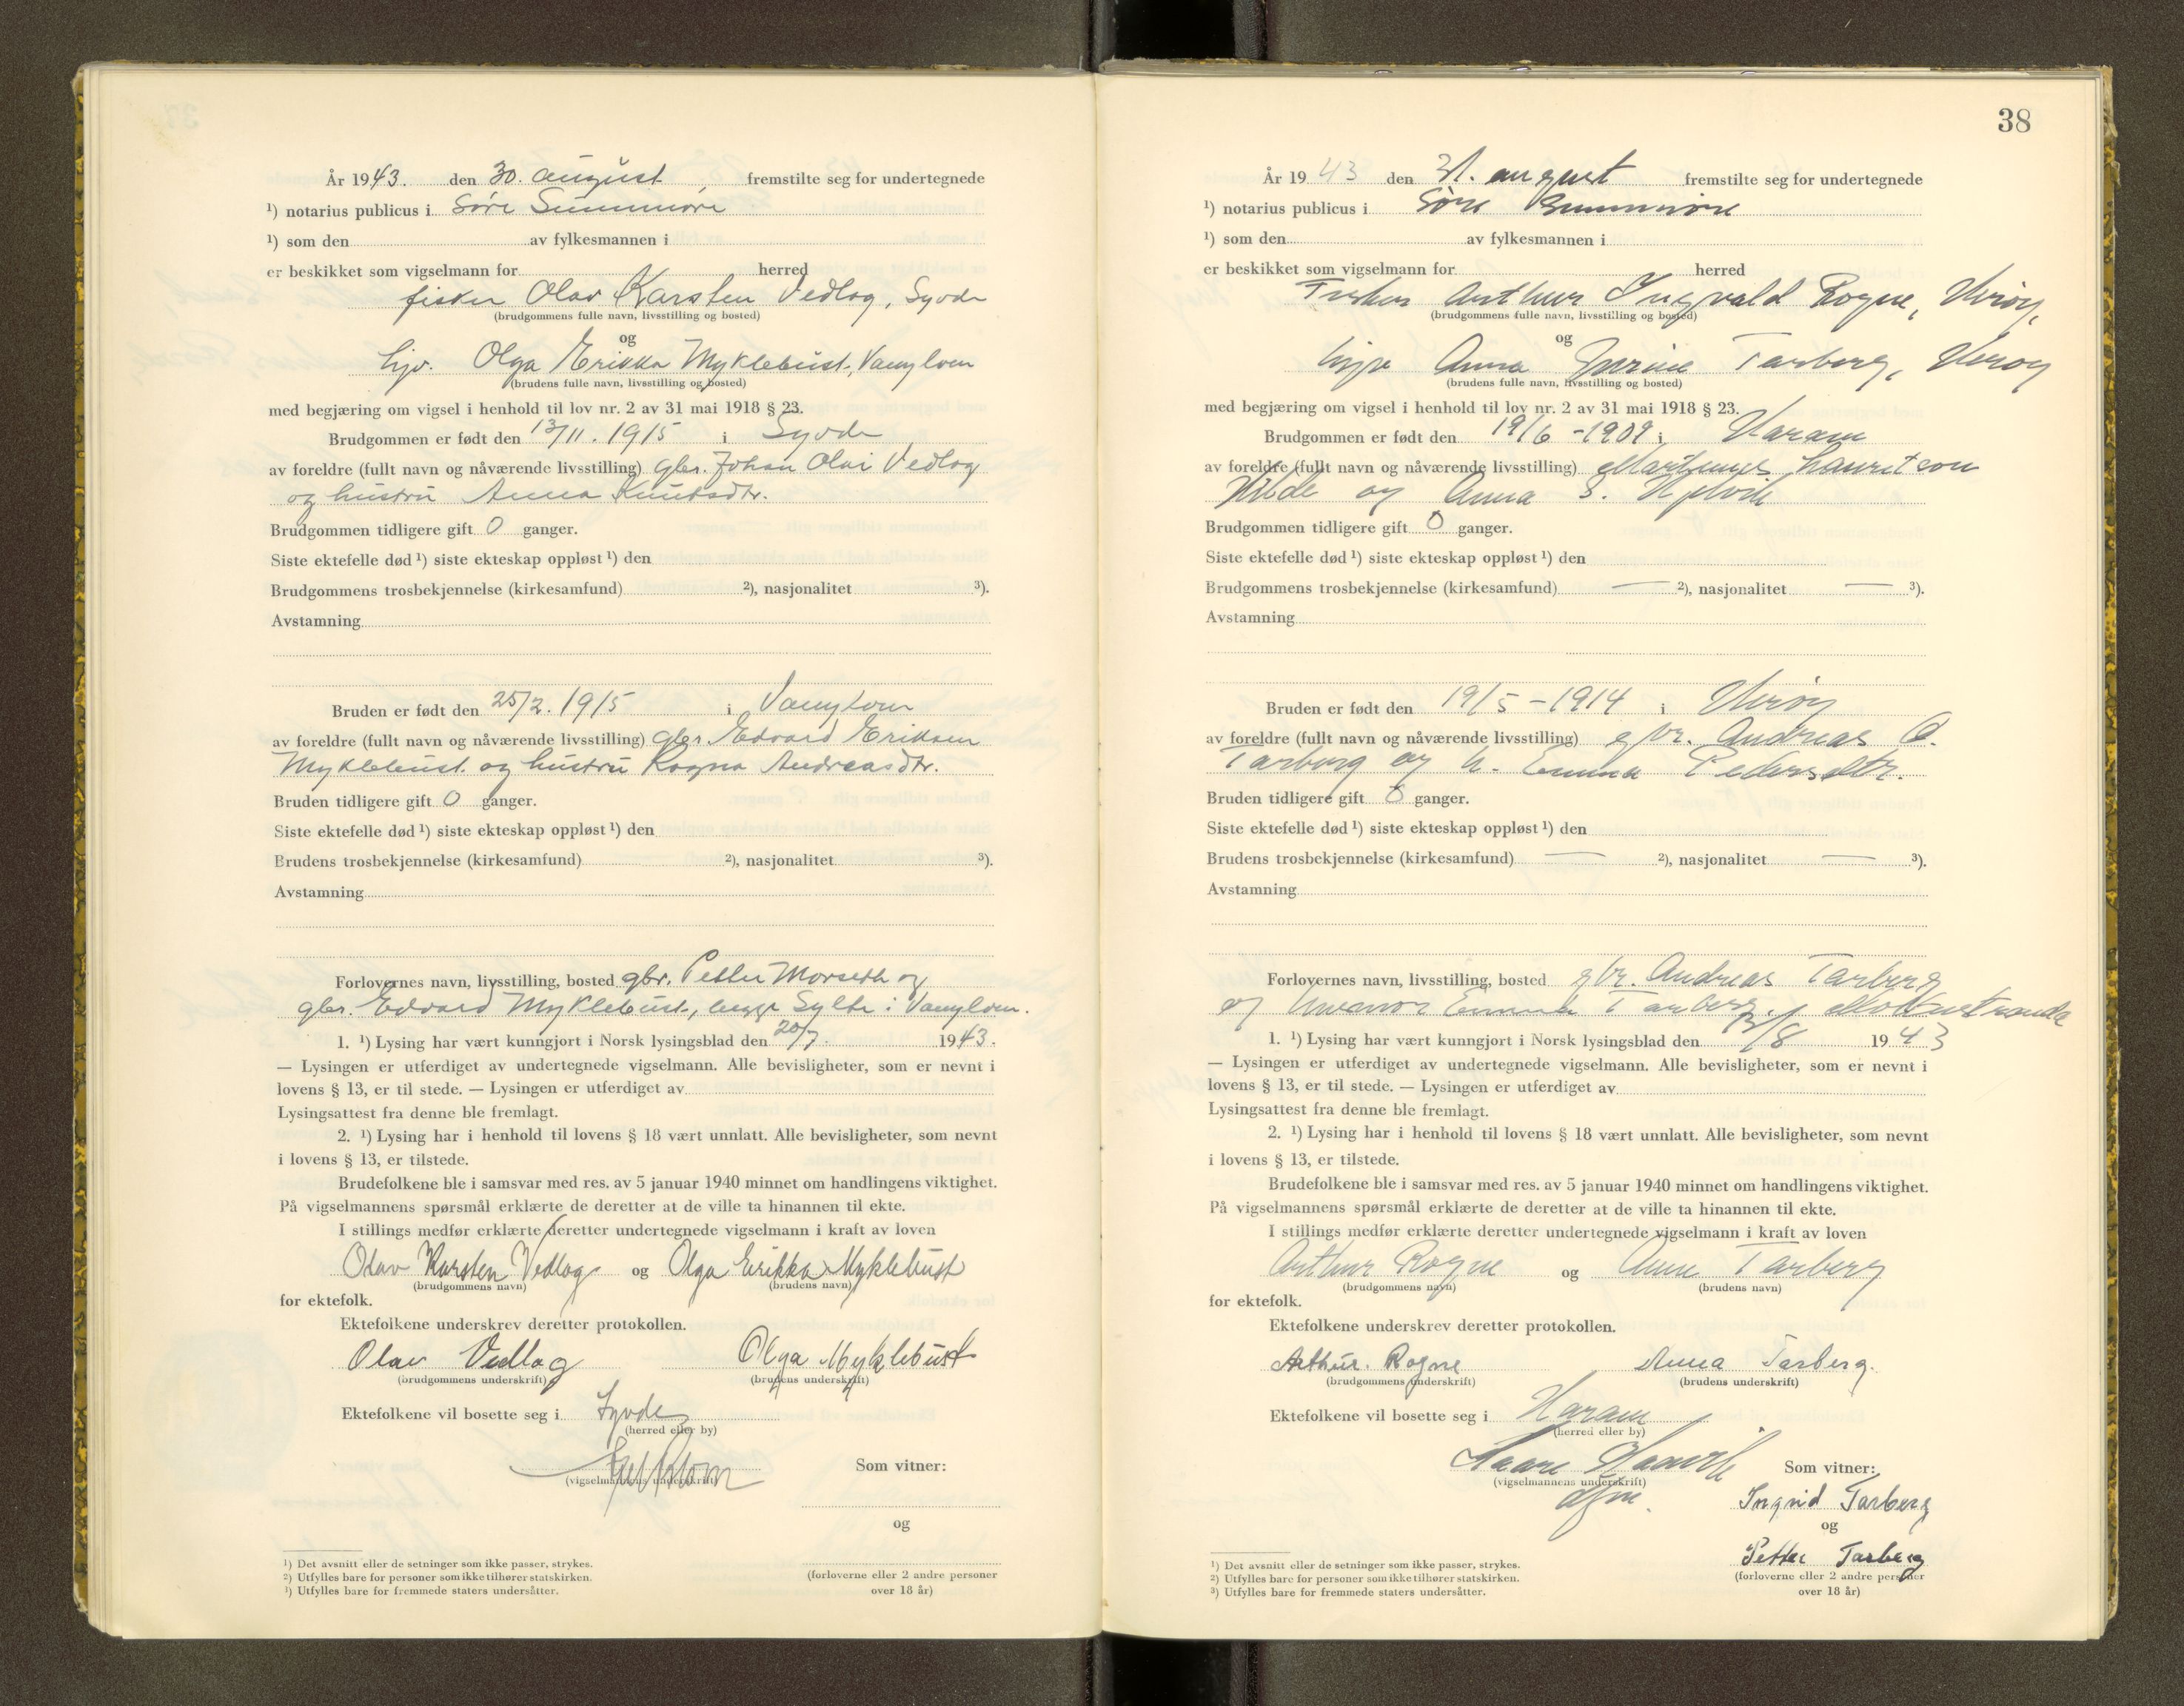 År 1943. den 30. august fremstilte seg for undertegnede
¹) notarius publicus i Søre Sunnmøre
¹) som den av fylkesmannen i
er beskikket som vigselmann for herred
fisker Olav Karsten Vedlog, Syvde
(brudgommens fulle navn, livsstilling og bosted)
og
hjv. Olga Erikka Myklebust, Vanylven
(brudens fulle navn, livsstilling og bosted)
med begjæring om vigsel i henhold til lov nr. 2 av 31 mai 1918 § 23.
Brudgommen er født den 13/11. 1915 i Syvde
av foreldre (fullt navn og nåværende livsstilling) gbr. Johan Olai Vedlog
og hustru Anna Knutsdtr.
Brudgommen tidligere gift 0 ganger.
Siste ektefelle død ¹) siste ekteskap oppløst ¹) den
Brudgommens trosbekjennelse (kirkesamfund) ²), nasjonalitet ³).
Avstamning
Bruden er født den 25/2. 1915 i Vanylven
av foreldre (fullt navn og nåværende livsstilling) gbr. Edvard Eriksen
Myklebust og hustru Ragna Andreasdtr.
Bruden tidligere gift 0 ganger.
Siste ektefelle død ¹) siste ekteskap oppløst ¹) den
Brudens trosbekjennelse (kirkesamfund) ²), nasjonalitet ³).
Avstamning
Forlovernes navn, livsstilling, bosted gbr. Petter Morseth og
gbr. Edvard Myklebust, begge Sylte i Vanylven.
1. ¹) Lysing har vært kunngjort i Norsk lysingsblad den 20/7. 1943.
— Lysingen er utferdiget av undertegnede vigselmann. Alle bevisligheter, som er nevnt i
lovens § 13, er til stede. — Lysingen er utferdiget av
Lysingsattest fra denne ble fremlagt.
2. ¹) Lysing har i henhold til lovens § 18 vært unnlatt. Alle bevisligheter, som nevnt
i lovens § 13, er tilstede.
Brudefolkene ble i samsvar med res. av 5 januar 1940 minnet om handlingens viktighet.
På vigselmannens spørsmål erklærte de deretter at de ville ta hinannen til ekte.
I stillings medfør erklærte deretter undertegnede vigselmann i kraft av loven
Olav Karsten Vedlog og Olga Erikka Myklebust
(brudgommens navn) (brudens navn)
for ektefolk.
Ektefolkene underskrev deretter protokollen.
Olav Vedlog Olga Myklebust
(brudgommens underskrift) (brudens underskrift)
Ektefolkene vil bosette seg i Syvde
(herred eller by)
(vigselmannens underskrift) Som vitner:
og
(forloverne eller 2 andre personer
over 18 år)
¹) Det avsnitt eller de setninger som ikke passer, strykes.
²) Utfylles bare for personer som ikke tilhører statskirken.
³) Utfylles bare for fremmede staters undersåtter.
38
År 1943 den 31. august fremstilte seg for undertegnede
¹) notarius publicus i Søre Sunnmøre
¹) som den av fylkesmannen i
er beskikket som vigselmann for herred
Fisker Arthur Ingvald Rogne, Herøy,
(brudgommens fulle navn, livsstilling og bosted)
og
Anna Jørine Tarberg, Herøy
(brudens fulle navn, livsstilling og bosted)
med begjæring om vigsel i henhold til lov nr. 2 av 31 mai 1918 § 23.
Brudgommen er født den 19/6 - 1909 i Haram
av foreldre (fullt navn og nåværende livsstilling) Lauritson
og Anna S.
Brudgommen tidligere gift 0 ganger.
Siste ektefelle død ¹) siste ekteskap oppløst ¹) den
Brudgommens trosbekjennelse (kirkesamfund) — ²), nasjonalitet — ³).
Avstamning
Bruden er født den 19/5 - 1914 i Herøy
av foreldre (fullt navn og nåværende livsstilling) gbr. Andreas
Tarberg og h. Emma Pedersdtr.
Bruden tidligere gift 0 ganger.
Siste ektefelle død ¹) siste ekteskap oppløst ¹) den
Brudens trosbekjennelse (kirkesamfund) — ²), nasjonalitet — ³).
Avstamning
Forlovernes navn, livsstilling, bosted gbr. Andreas Tarberg
og Emma Tarberg, Moltustranda
1. ¹) Lysing har vært kunngjort i Norsk lysingsblad den 3/8 1943
— Lysingen er utferdiget av undertegnede vigselmann. Alle bevisligheter, som er nevnt i
lovens § 13, er til stede. — Lysingen er utferdiget av
Lysingsattest fra denne ble fremlagt.
2. ¹) Lysing har i henhold til lovens § 18 vært unnlatt. Alle bevisligheter, som nevnt
i lovens § 13, er tilstede.
Brudefolkene ble i samsvar med res. av 5 januar 1940 minnet om handlingens viktighet.
På vigselmannens spørsmål erklærte de deretter at de ville ta hinannen til ekte.
I stillings medfør erklærte deretter undertegnede vigselmann i kraft av loven
Arthur Rogne og Anna Tarberg
(brudgommens navn) (brudens navn)
for ektefolk.
Ektefolkene underskrev deretter protokollen.
Arthur. Rogne Anna Tarberg.
(brudgommens underskrift) (brudens underskrift)
Ektefolkene vil bosette seg i Haram
(herred eller by)
(vigselmannens underskrift) Som vitner:
Ingrid Tarberg
og
Petter Tarberg
(forloverne eller 2 andre personer
over 18 år)
¹) Det avsnitt eller de setninger som ikke passer, strykes.
²) Utfylles bare for personer som ikke tilhører statskirken.
³) Utfylles bare for fremmede staters undersåtter.